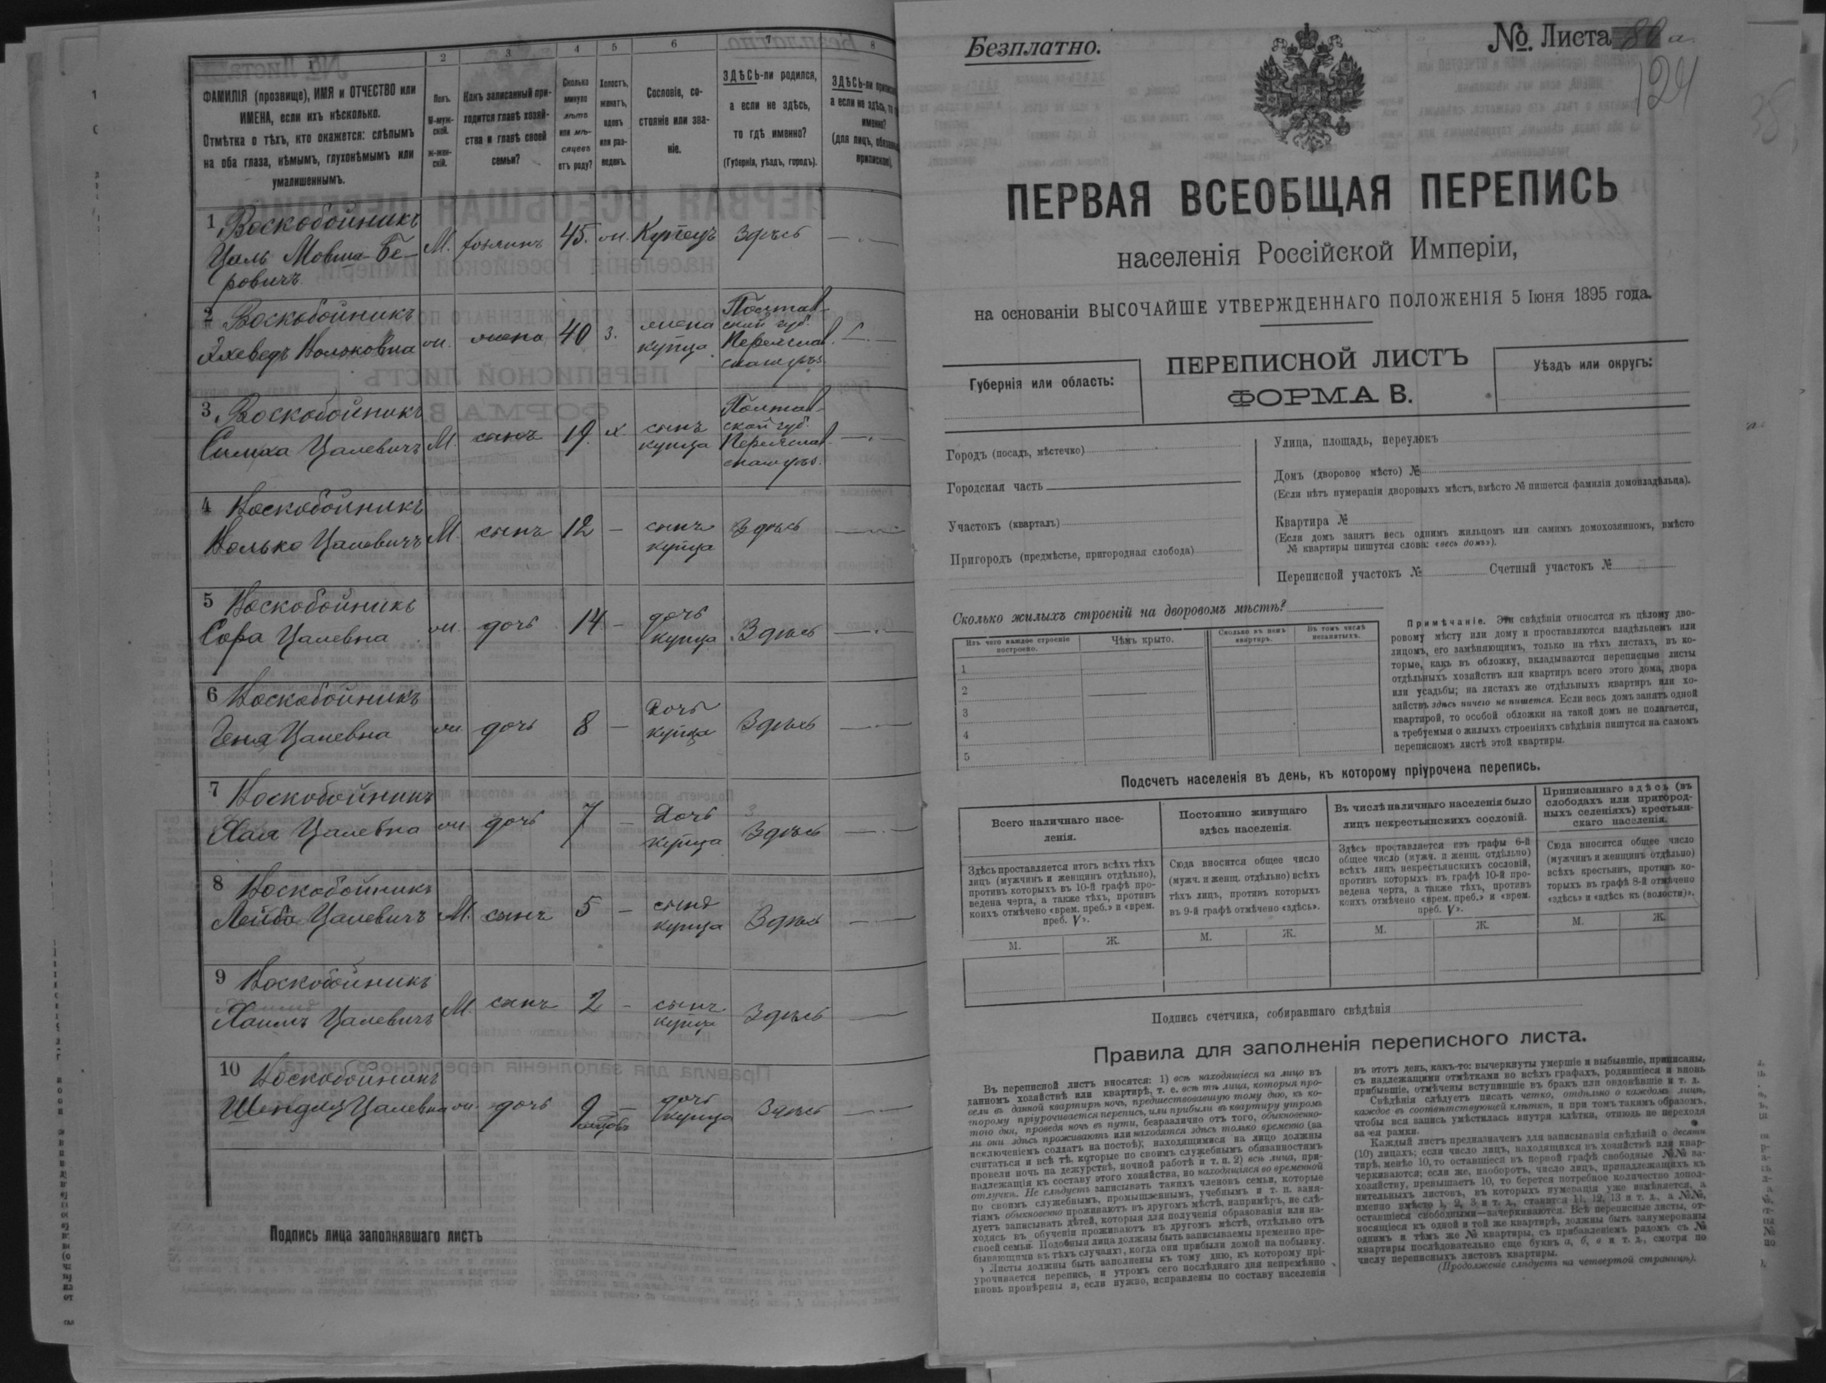 1
2
3
4
5
6
7
8
ФАМИЛІЯ (прозвище), ИМЯ и ОТЧЕСТВО или
ИМЕНА, если ихъ нѣсколько.
Отмѣтка о тѣхъ, кто окажется: слѣпымъ
на оба глаза, нѣмымъ, глухонѣмымъ или
умалишеннымъ.
Полъ.
М-муж-
ской.
ж-жен-
скій.
Какъ записанный при-
ходится главѣ хозяй-
ства и главѣ своей
семьи?
Сколько
минуло
лѣтъ
или мѣ-
сяцевъ
отъ роду?
Холостъ,
женатъ,
вдовъ
или раз-
веденъ.
Сословіе, со-
стояніе или зва-
ніе.
ЗДѢСЬ-ли родился,
а если не здѣсь,
то гдѣ именно?
(Губернія, уѣздъ, городъ).
ЗДѢСЬ-ли
а если не здѣсь, то
именно?
(для лицъ,
1 Воскобойникъ
Цаль Мовша-Бе-
ровичъ
М. хозяинъ 45. ж. Купецъ Здѣсь
2 Воскобойникъ
Яхеведъ Вольковна
ж. жена 40 з. жена
купца
Полтав-
ской губ.
Переяслав.
3 Воскобойникъ
Симха Цалевичъ
М. сынъ 19. х. сынъ
купца
Полтав-
ской губ.
Переяслав.
4 Воскобойникъ
Волько Цалевичъ
М. сынъ 12 – сынъ
купца
Здѣсь
5 Воскобойникъ
Сора Цалевна
ж. дочь 14 – дочь
купца
Здѣсь
6 Воскобойникъ
Геня Цалевна
ж. дочь 8 – Дочь
купца
Здѣсь
7 Воскобойникъ
Хая Цалевна
ж. дочь 7 – Дочь
купца
Здѣсь
8 Воскобойникъ
Лейба Цалевичъ
М. сынъ 5 – сынъ
купца
Здѣсь
9 Воскобойникъ
Хаимъ Цалевичъ
М. сынъ 2 – сынъ
купца
Здѣсь
10 Воскобойникъ
Цалевна
ж. дочь 9 – дочь
купца
Здѣсь
Подпись лица заполнявшаго листъ
Безплатно.
№ Листа
124
ПЕРВАЯ ВСЕОБЩАЯ ПЕРЕПИСЬ
населенія Россійской Имперіи,
на основаніи ВЫСОЧАЙШЕ УТВЕРЖДЕННАГО ПОЛОЖЕНІЯ 5 Іюня 1895 года.
Губернія или область:
ПЕРЕПИСНОЙ ЛИСТЪ
ФОРМА В.
Уѣздъ или округъ:
Городъ (посадъ, мѣстечко)
Городская часть
Участокъ (кварталъ)
Пригородъ (предмѣстье, пригородная слобода)
Улица, площадь, переулокъ
Домъ (дворовое мѣсто) №
(Если нѣтъ нумераціи дворовыхъ мѣстъ, вмѣсто № пишется фамилія домовладѣльца).
Квартира №
(Если домъ занятъ весь однимъ жильцомъ или самимъ домохозяиномъ, вмѣсто
№ квартиры пишутся слова: «весь домъ»).
Переписной участокъ № Счетный участокъ №
Сколько жилыхъ строеній на дворовомъ мѣстѣ?
Изъ чего каждое строеніе
построено.
Чѣмъ крыто.
Сколько въ немъ
квартиръ.
Въ томъ числѣ
незанятыхъ.
1
2
3
4
5
Примѣчаніе. Эти свѣдѣнія относятся къ цѣлому дво-
ровому мѣсту или дому и проставляются владѣльцемъ или
лицомъ, его замѣняющимъ, только на тѣхъ листахъ, въ ко-
торые, какъ въ обложку, вкладываются переписные листы
отдѣльныхъ хозяйствъ или квартиръ всего этого дома, двора
или усадьбы; на листахъ же отдѣльныхъ квартиръ или хо-
зяйствъ здѣсь ничего не пишется. Если весь домъ занятъ одной
квартирой, то особой обложки на такой домъ не полагается,
а требуемыя о жилыхъ строеніяхъ свѣдѣнія пишутся на самомъ
переписномъ листѣ этой квартиры.
Подсчетъ населенія въ день, къ которому пріурочена перепись.
Всего наличнаго насе-
ленія.
Постоянно живущаго
здѣсь населенія.
Въ числѣ наличнаго населенія было
лицъ некрестьянскихъ сословій.
Приписаннаго здѣсь (въ
слободахъ или пригород-
ныхъ селеніяхъ) крестьян-
скаго населенія.
Здѣсь проставляется итогъ всѣхъ тѣхъ
лицъ (мужчинъ и женщинъ отдѣльно),
противъ которыхъ въ 10-й графѣ про-
ведена черта, а также тѣхъ, противъ
коихъ отмѣчено «врем. преб.» и «врем.
преб. V».
Сюда вносится общее число
(мужч. и женщ. отдѣльно) всѣхъ
тѣхъ лицъ, противъ которыхъ
въ 9-й графѣ отмѣчено «здѣсь».
Здѣсь проставляется изъ графы 6-й
общее число (мужч. и женщ. отдѣльно)
всѣхъ лицъ некрестьянскихъ сословій,
противъ которыхъ въ графѣ 10-й про-
ведена черта, а также тѣхъ, противъ
коихъ отмѣчено «врем. преб.» и «врем.
преб. V».
Сюда вносится общее число
(мужчинъ и женщинъ отдѣльно)
всѣхъ крестьянъ, противъ ко-
торыхъ въ графѣ 8-й отмѣчено
«здѣсь» и «здѣсь къ (волости)».
М. Ж. М. Ж. М. Ж. М. Ж.
Подпись счетчика, собиравшаго свѣдѣнія
Правила для заполненія переписного листа.
Въ переписной листъ вносятся: 1) всѣ находящіеся на лицо въ
данномъ хозяйствѣ или квартирѣ, т. е. всѣ тѣ лица, которыя про-
вели въ данной квартирѣ ночь, предшествовавшую тому дню, къ ко-
торому пріурочивается перепись, или прибыли въ квартиру утромъ
того дня, проведя ночь въ пути, безразлично отъ того, обыкновенно-
ли они здѣсь проживаютъ или находятся здѣсь только временно (за
исключеніемъ солдатъ на постоѣ); находящимися на лицо должны
считаться и всѣ тѣ, которые по своимъ служебнымъ обязанностямъ
провели ночь на дежурствѣ, ночной работѣ и т. п. 2) всѣ лица, при-
надлежащія къ составу этого хозяйства, но находящіяся во временной
отлучкѣ. Не слѣдуетъ записывать такихъ членовъ семьи, которые
по своимъ служебнымъ, промышленнымъ, учебнымъ и т. п. заня-
тіямъ обыкновенно проживаютъ въ другомъ мѣстѣ, напримѣръ, не слѣ-
дуетъ записывать дѣтей, которыя для полученія образованія или на-
ходясь въ обученіи проживаютъ въ другомъ мѣстѣ, отдѣльно отъ
своей семьи. Подобныя лица должны быть записываемы временно пре-
бывающими въ тѣхъ случаяхъ, когда они прибыли домой на побывку.
Листы должны быть заполнены къ тому дню, къ которому прі-
урочивается перепись, и утромъ сего послѣдняго дня непремѣнно
вновь провѣрены и, если нужно, исправлены по составу населенія
въ этотъ день, какъ-то: вычеркнуты умершіе и выбывшіе, приписаны,
съ надлежащими отмѣтками во всѣхъ графахъ, родившіеся и вновь
прибывшіе, отмѣчены вступившіе въ бракъ или овдовѣвшіе и т. д.
Свѣдѣнія слѣдуетъ писать четко, отдѣльно о каждомъ лицѣ,
каждое въ соотвѣтствующей клѣткѣ, и при томъ такимъ образомъ,
чтобы вся запись умѣстилась внутри клѣтки, отнюдь не переходя
за ея рамки.
Каждый листъ предназначенъ для записыванія свѣдѣній о десяти
(10) лицахъ; если число лицъ, находящихся въ хозяйствѣ или квар-
тирѣ, менѣе 10, то оставшіеся въ первой графѣ свободные №№ за-
черкиваются; если же, наоборотъ, число лицъ, принадлежащихъ къ
хозяйству, превышаетъ 10, то берется потребное количество допол-
нительныхъ листовъ, въ которыхъ нумерація уже измѣняется, а
именно вмѣсто 1, 2, 3 и т. д., ставится 11, 12, 13 и т. д., а №№,
оставшіеся свободными—вычеркиваются. Всѣ переписные листы, от-
носящіеся къ одной и той же квартирѣ, должны быть занумерованы
однимъ и тѣмъ же № квартиры, съ прибавленіемъ рядомъ съ №
квартиры послѣдовательно еще буквъ а, б, в и т. д., смотря по
числу переписныхъ листовъ квартиры.
(Продолженіе слѣдуетъ на четвертой страницѣ).